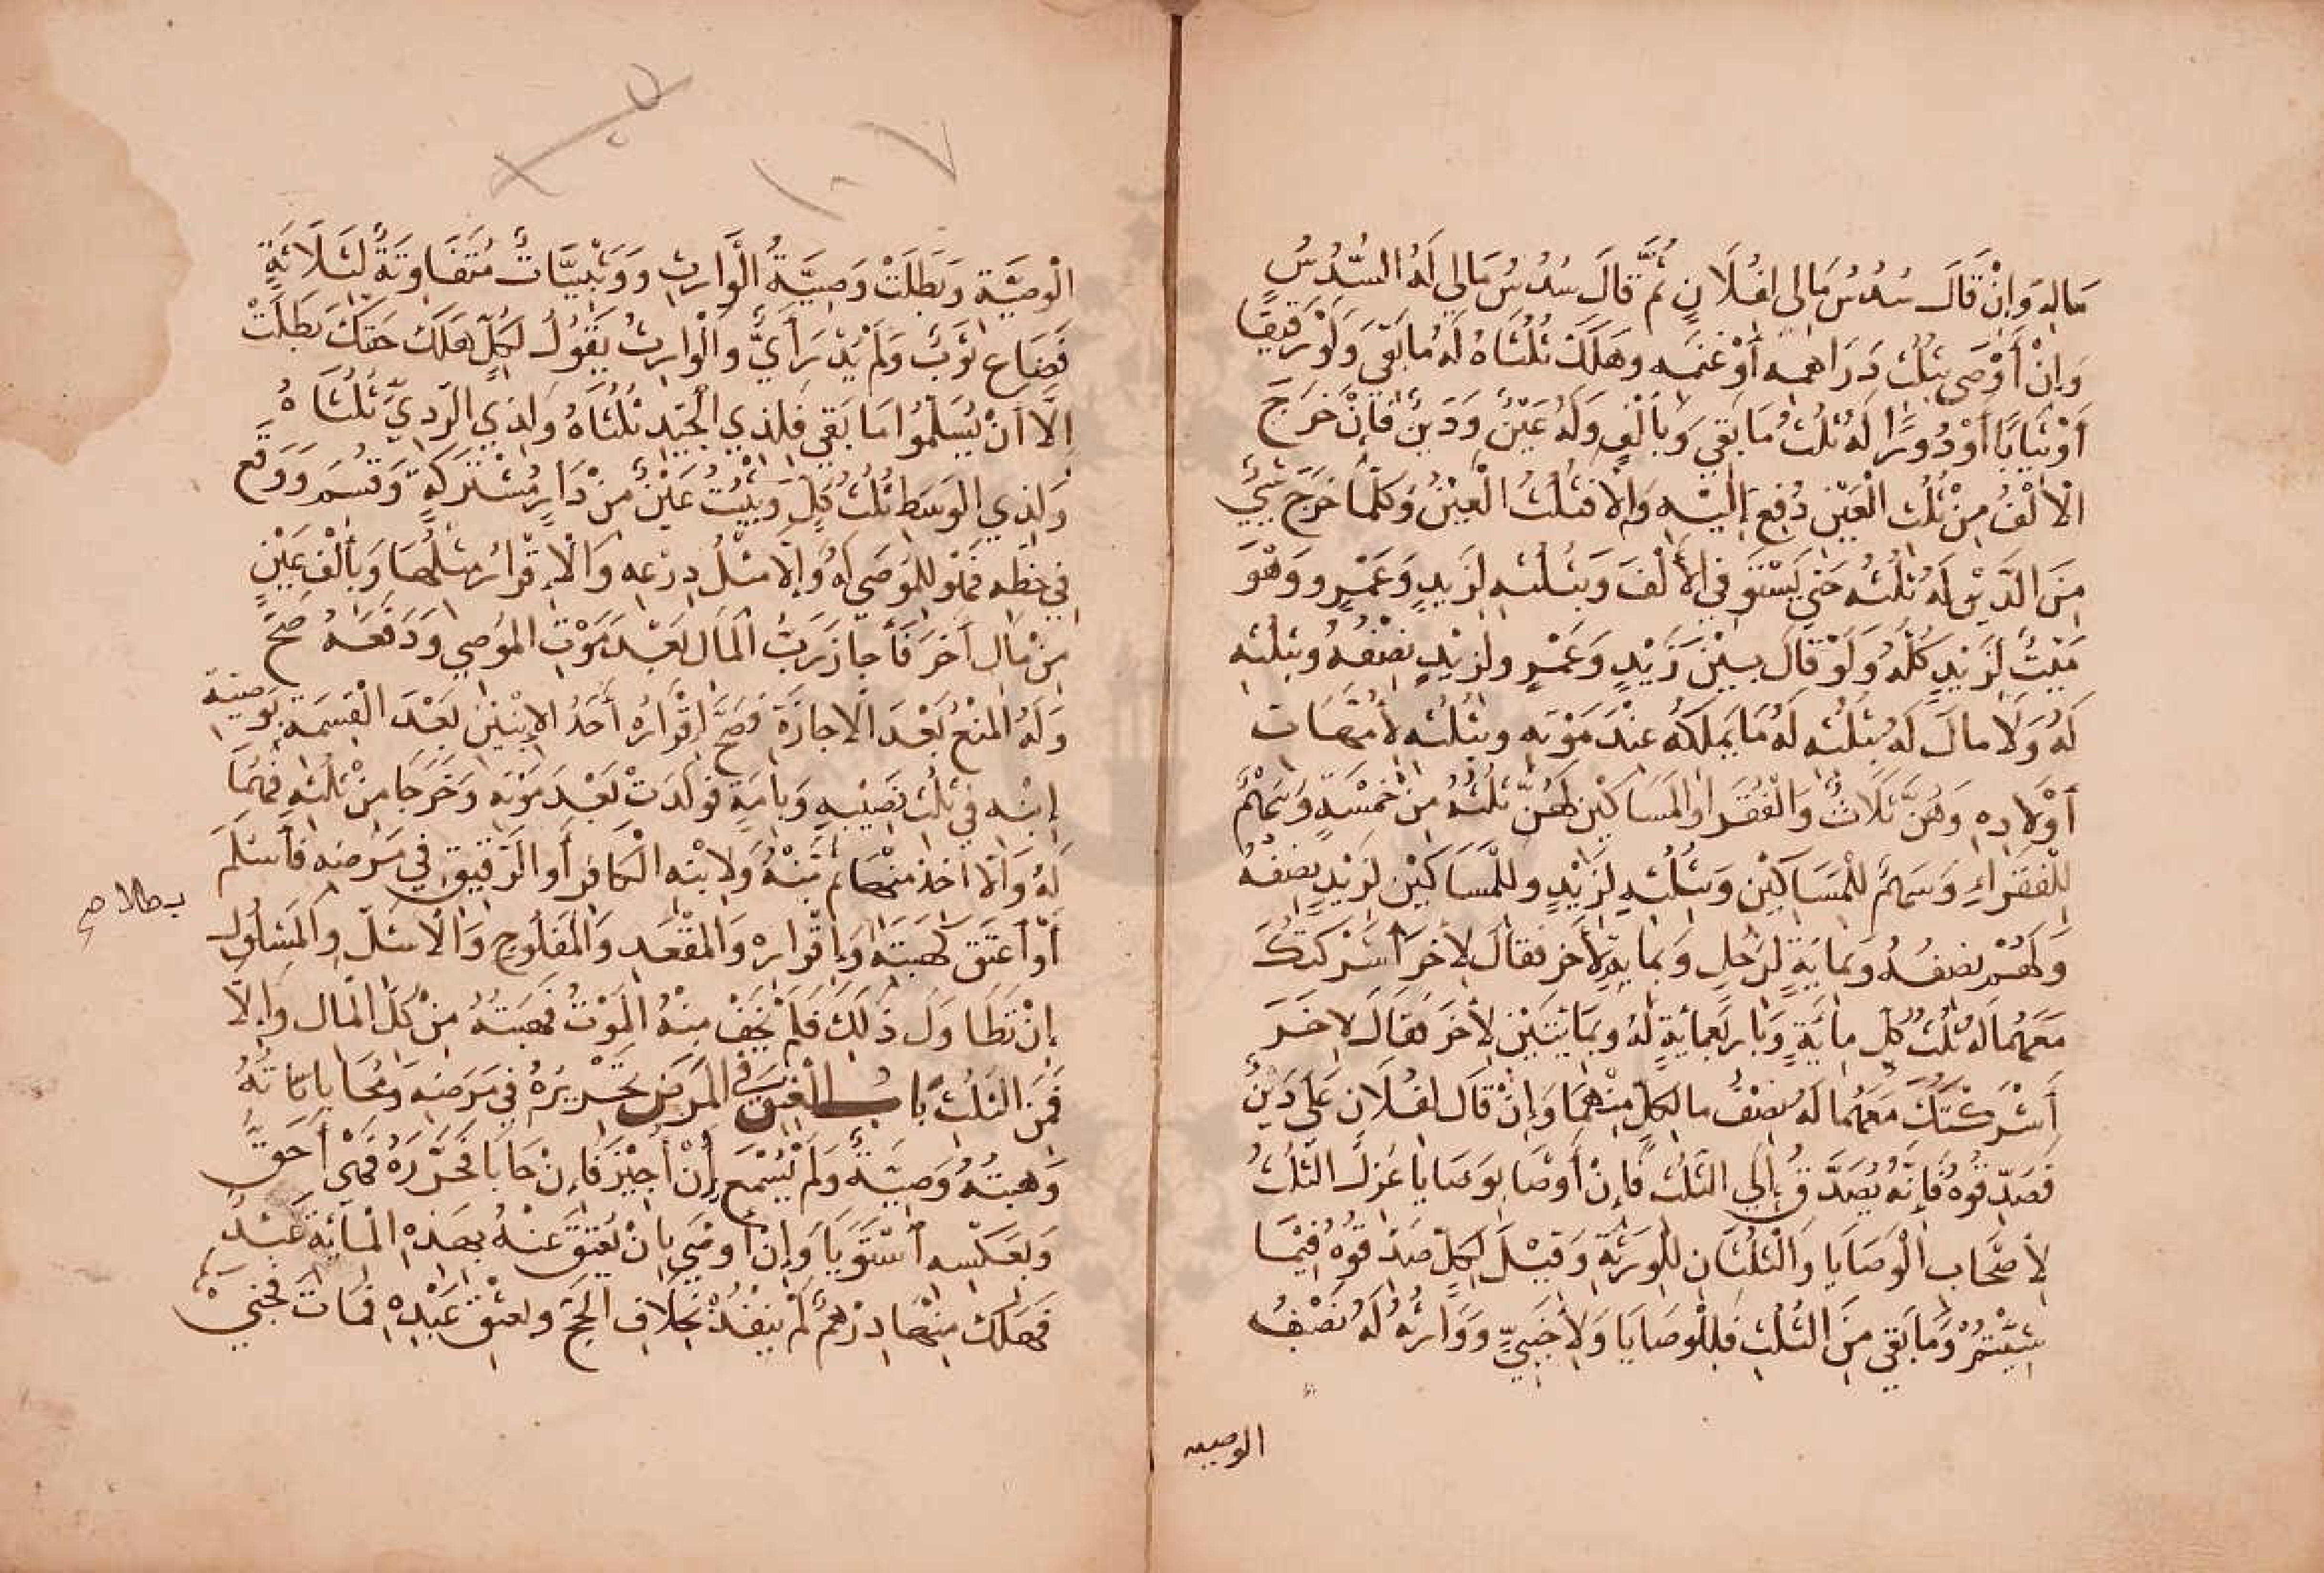 مَالِهِ وَإِنْ قَالَ سُدُسُ مَالِي لِفُلَانٍ ثُمَّ قَالَ سُدُسُ مَالِي لَهُ السُّدُسُ
وَإِنْ أَوْصَى بِثُلُثِ دَرَاهِمِهِ أَوْ غَنَمِهِ وَهَلَكَ ثُلُثَاهُ لَهُ مَا بَقِيَ وَلَوْ رَقِيقًا
أَوْ ثِيَابًا أَوْ دُورًا لَهُ ثُلُثُ مَا بَقِيَ وَبِأَلْفٍ وَلَهُ عَيْنٌ وَدَيْنٌ فَإِنْ خَرَجَ
الْأَلْفُ مِنْ ثُلُثِ الْعَيْنِ دُفِعَ إِلَيْهِ وَإِلَّا فَثُلُثُ الْعَيْنِ وَكُلَّمَا خَرَجَ شَيْءٌ
مِنَ الدَّيْنِ لَهُ ثُلُثُهُ حَتَّى يَسْتَوْفِيَ الْأَلْفَ وَبِثُلُثِهِ لِزَيْدٍ وَعَمْرٍو وَهْوَ
مَيِّتٌ لِزَيْدٍ كُلُّهُ وَلَوْ قَالَ بَيْنَ زَيْدٍ وَعَمْرٍ وَلِزَيْدٍ نِصْفُهُ وَبِثُلُثِهِ
لَهُ وَلَا مَالَ لَهُ بِثُلُثِهِ لَهُ مَا يَمْلِكُهُ عِنْدَ مَوْتِهِ وَبِثُلُثِهِ لِأُمَّهَاتِ
أَوْلَادِهِ وَهُنَّ ثَلَاثٌ وَالْفُقَرَا وَالْمَسَاكِيْنِ لَهُنَّ ثَلَثُهُ مِنْ خَمْسَةٍ وَسَهْمٌ
لِلْفُقَرَاءِ وَسَهْمٌ لِلْمَسَاكِيْنِ وَبِثُلُثِهِ لِزَيْدٍ وَلِلْمَسَاكِيْنِ لِزَيْدٍ نِصْفُهُ
وَلَهُمْ نِصْفُهُ وَبِمَايَةٍ لِرَجُلٍ وَبِمَايَةٍ لِأَخَرَ فَقَالَ لِأَخَرَ أَشْرَكْتُكَ
مَعَهُمَا لَهُ ثُلُثُ كُلِّ مِايَةٍ وَبِأَرْبَعِمِائَةٍ لَهُ وَبِمَايَتَيْنِ لِأَخَرَ فَقَالَ لِأَخَرَ
أَشْرَكْتُكَ مَعَهُمَا لَهُ نِصْفُ مَا لِكُلٍّ مِنْهُمَا وَإِنْ قَالَ لِفُلَانٍ عَلَيَّ دَيْنٌ
فَصَدِّقُوهُ فَإِنَّهُ يُصَدَّقُ إِلَى الثُّلُثِ فَإِنْ أَوْصَا بِوَصَايَا عُزِلَ الثُّلُثُ
لِأَصْحَابِ الْوَصَايَا وَالثُّلُثَانِ لِلْوَرَثَةِ وَقِيْلَ لِكُلٍّ صَدِّقُوهُ فِيْمَا
شِئْتُمْ وَمَا بَقِيَ مِنَ الثُّلُثِ فَلِلْوَصَايَا وَلِأَجْنَبِيٍّ وَوَارِثُهُ لَهُ نِصْفُ
الوصيه
١٠٧
الْوَصِيَّةِ وَبَطَلَتْ وَصِيَّةُ الْوَارِثِ وَبِثِيَابٍ مُتَفَاوِتَةٍ لِثَلَاثَةٍ
فَضَاعَ ثَوْبٌ وَلَمْ يُدْرَ أَيٌّ وَالْوَارِثُ يَقُولُ لِكُلٍّ هَلَكَ حَقُّكَ بَطَلَتْ
إِلَّا أَنْ يُسَلِّمُوا مَا بَقِيَ فَلِذِي الْجَيِّدِ ثُلُثَاهُ وَلِذِي الرَّدِيِّ ثُلُثَاهُ
وَلِذِي الْوَسَطِ ثُلُثُ كُلٍّ وَبَيْتٌ عَيْنٌ مِنْ دَارٍ مُشْتَرَكَةٍ وَقُسِمَ وَوَقَعَ
فِي حَظِّهِ فَهْوَ لِلْمُوصَى لَهُ وَإِلَّا مِثْلُ ذَرْعِهِ وَالْإِقْرَارُ مِثْلُهَا وَبِأَلْفٍ عَيْنٍ
مِنْ مَالِ أَخَرَ فَأَجَازَ رَبُّ الْمَالِ بَعْدَ مَوْتِ الْمُوصِي وَدَفَعَهُ صَحَّ
وَلَهُ الْمَنْعُ بَعْدَ الْإِجَازَةِ فَصَحَّ إِقْرَارُ أَحَدِ الْإِبْنَيْنِ بَعْدَ الْقِسْمَةِ بِوَصِيَّةِ
إِبْنِهِ فِي ثُلُثِ نَصِيْبِهِ وَبِأَمَةٍ فَوَلَدَتْ بَعْدَ مَوْتِهِ وَخَرَجَا مِنْ ثُلُثِهِ فَهُمَا
لَهُ وَإِلَّا أَخَذَ مِنْهَا ثُمَّ مِنْهُ وَلِابْنِهِ الْكَافِرِ أَوِ الرَّقِيْقِ فِي مَرَضِهِ فَأَسْلَمَ
أَوْ أَعْتَقَ كَهِبَتِهِ وَإِقْرَارِهِ وَالْمُقْعَدِ وَالْمَفْلُوجِ وَالْأَشَلِّ وَالْمَسْلُولِ
بطلا صح
إِنْ تَطَاوَلَ ذَلِكَ فَلَمْ يُخَفْ مِنْهُ الْمَوْتُ فَهِبَتُهُ مِنْ كُلِّ الْمَالِ وَإِلَّا
فَمِنَ الثُّلُثِ بَابُ الْعِتْقِ فِي الْمَرَضِ تَحْرِيْرُهُ فِي مَرَضِهِ وَمُحَابَاتُهُ
وَهِبَتُهُ وَصِيَّةٌ وَلَمْ يُسْمَعْ إِنْ أُجِيْزَ فَإِنْ حَابَا فَحَرَّرَهُ فَهِيَ أَحَقُّ
وَبِعَكْسِهِ اسْتَوَيَا وَإِنْ أَوْصَى بِأَنْ يُعْتِقَ عَنْهُ بِهَذِهِ الْمِائَةِ عَبْدٌ
فَهَلَكَ مِنْهَا دِرْهَمٌ لَمْ يَنْفُذْ بِخِلَافِ الْحَجِّ وَبِعِتْقِ عَبْدِهِ فَمَاتَ فَجَنَى